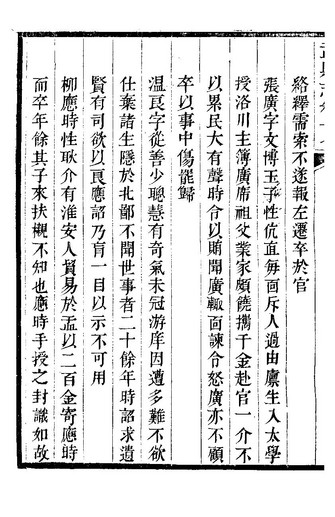 絡釋需索不遂報左遷卒於官
張廣字文博玉子性伉直每面斥人過由廩生入太學
授洛川主簿廣席祖父業家頗饒攜千金赴官一介不
以累民大有聲時令以賄聞廣輙面諫令怒廣亦不顧
卒以事中傷罷歸
溫良字從善少聰慧有奇氣未冠游庠因遭多難不欲
仕棄諸生隱於北鄙不聞世事者二十餘年時詔求遺
賢有司欲以良應詔乃盲一目以示不可用
柳應時性耿介有淮安人貿易於孟以二百金寄應時
而卒年餘其子來扶櫬不知也應時手授之封識如故